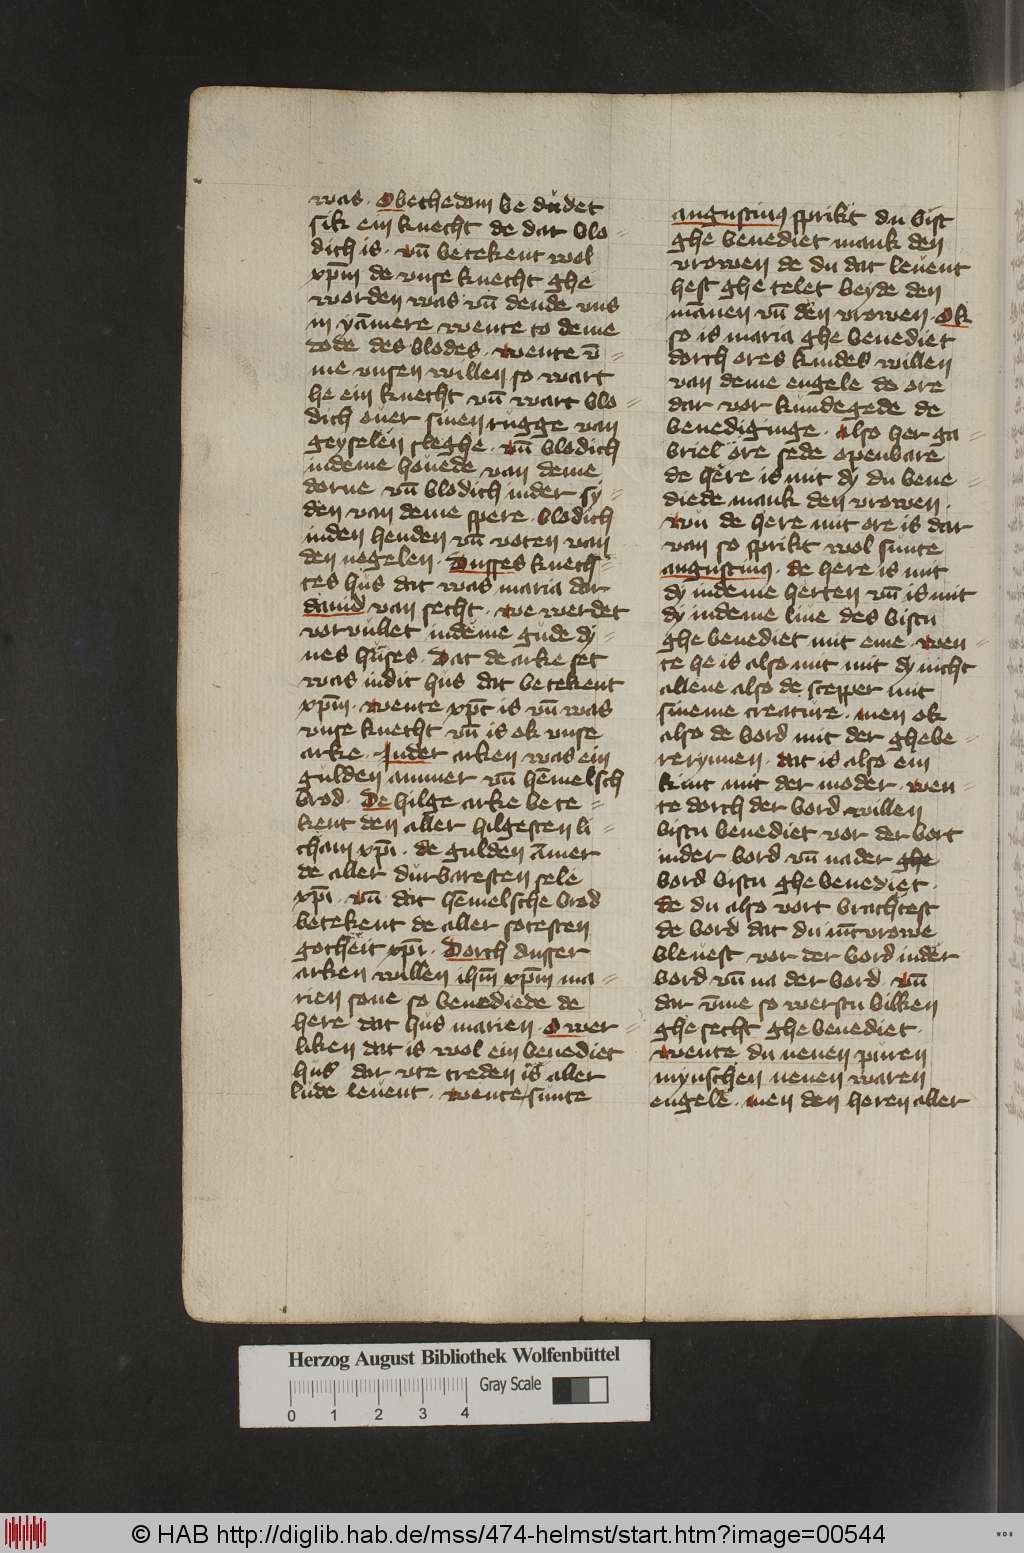 was · Obethedom be dudet
sik ein knecht de dar blo-
dich is · vn̄ betekent wol
xp̄m de vnse knecht ghe
worden was vn̄ dende vns
in yāmere wente to deme
dode des blodes · wente v̄-
me vnsen willen so wart
he ein knecht vn̄ wart blo-
dich ouer sinen rugge van
geyselen sleghe · vn̄ blodich
indeme houede van deme
dorne vn̄ blodich inder sy-
den van deme spere · blodich
inden henden vn̄ voten van
den negelen · Dusses knech-
tes hus dat was maria dar
dauid van secht · we werdet
voruullet indeme gude dy-
nes huses · Dat de arke set
was indit hus dat betekent
xp̄m · wente xp̄c is vn̄ was
vnse knecht vn̄ is ok vnse
arke · Inder arken was ein
gulden ammer vn̄ hēmelsch
brod · De hilge arke bete-
kent den aller hilgesten li-
cham xp̄i · de gulden āmer
de aller durbaresten sele
xp̄i · vn̄ dat hēmelsche brod
betekent de aller sotesten
gotheit xp̄i · Dorch dusser
arken willen ih̄m xp̄m ma-
rien sone so benediede de
here dat hus marien · O wer-
liken dat is wol ein benediet
hus dar vte treden is aller
lude leuent · wente sunte
augustinus sprikt du bist
ghe benediet mank den
vrowen de du dat leuent
hest ghe telet beyde den
mannen vn̄ den vrowen · Ok
so is maria ghe benediet
dorch ores kindes willen
van deme engele do ore
dar vor kundegede de
benediginge · Also her ga-
briel ore sede openbare
de here is mit dy du bene-
diede mank den vrowen ·
wu de here mit ore is dar
van so sprikt wol sunte
augustinus · de here is mit
dy indeme herten vn̄ is mit
dy indeme liue des bistu
ghe benediet mit eme · wen-
te he is also mit mit dy nicht
allene also de scepper mit
sineme creature · men ok
also de bord mit der ghebe-
rerynnen · dat is also ein
kint mit der moder · wen-
te dorch der bord willen
bistu benediet vor der bort
inder bord vn̄ na der ghe
bord bistu ghe benediet ·
de du also vort brachtest
de bord dat du iūcvrowe
bleuest vor der bord inder
bord vn̄ na der bord · vn̄
dar v̄me so werstu billken
ghe secht ghe benediet ·
wente du nenen puren
mynschen nenen waren
engele · men den heren aller
Herzog August Bibliothek Wolfenbüttel
Gray Scale
0 1 2 3 4
© HAB http://diglib.hab.de/mss/474-helmst/start.htm?image=00544